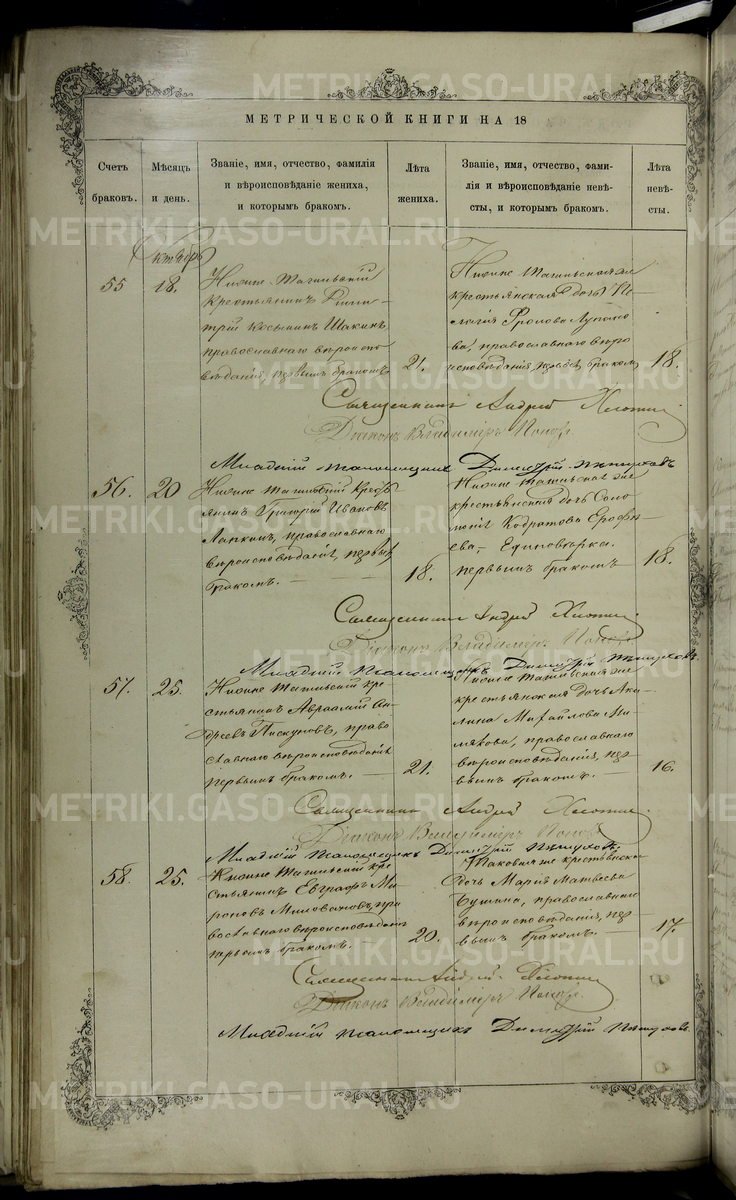 МЕТРИЧЕСКОЙ КНИГИ НА 18
Счетъ браковъ.
Мѣсяцъ и день.
Званіе, имя, отчество, фамилія
и вѣроисповѣданіе жениха,
и которымъ бракомъ.
Лѣта жениха.
Званіе, имя, отчество, фами-
лія и вѣроисповѣданіе невѣ-
сты, и которымъ бракомъ.
Лѣта невѣ-
сты.
Октябрь
55
18.
Нижне Тагильскій
крестьянинъ Дими-
трій Косьминъ Шакинъ,
православнаго вѣроиспо-
вѣданія, первымъ бракомъ
21.
Нижне Тагильская
крестьянская дочь Пе-
лагія Фролова
православнаго вѣро
исповѣданія, бракомъ
18.
Священникъ Андрей
Діаконъ Владиміръ Поповъ
Младшій Димитрій Пѣтуховъ
56.
20
Нижне Тагильскій кресть-
янинъ Григорій Ивановъ
Лапкинъ, православнаго
вѣроисповѣданія, первымъ
бракомъ.
18.
Нижне Тагильская
крестьянская дочь Соло-
монія Кодратова Ерофѣ-
ева, Единовѣрка.
первымъ бракомъ
18.
Священникъ Андрей
Діаконъ Владиміръ Поповъ
Младшій Димитрій Пѣтуховъ
57.
25.
Нижне Тагильскій кре-
стьянинъ Авраамій Ан-
дреевъ Пискуновъ, право
славнаго вѣроисповѣданія
первымъ бракомъ.
21.
Нижне Тагильская
крестьянская дочь Аку-
лина Михайлова
православнаго
вѣроисповѣданія, пер-
вымъ бракомъ.
16.
Священникъ Андрей
Діаконъ Владиміръ Поповъ
Младшій Димитрій Пѣтуховъ
58.
25.
Нижне Тагильскій кре-
стьянинъ Евграфъ Ми-
роновъ Миловановъ, пра
вославнаго вѣроисповѣданія
первымъ бракомъ.
20.
Таковая же крестьянская
дочь Марія Матвѣева
православнаго
вѣроисповѣданія, пер-
вымъ бракомъ.
17.
Священникъ Андрей
Діаконъ Владиміръ Поповъ
Младшій Димитрій Пѣтуховъ
METRIKI.GASO-URAL.RU